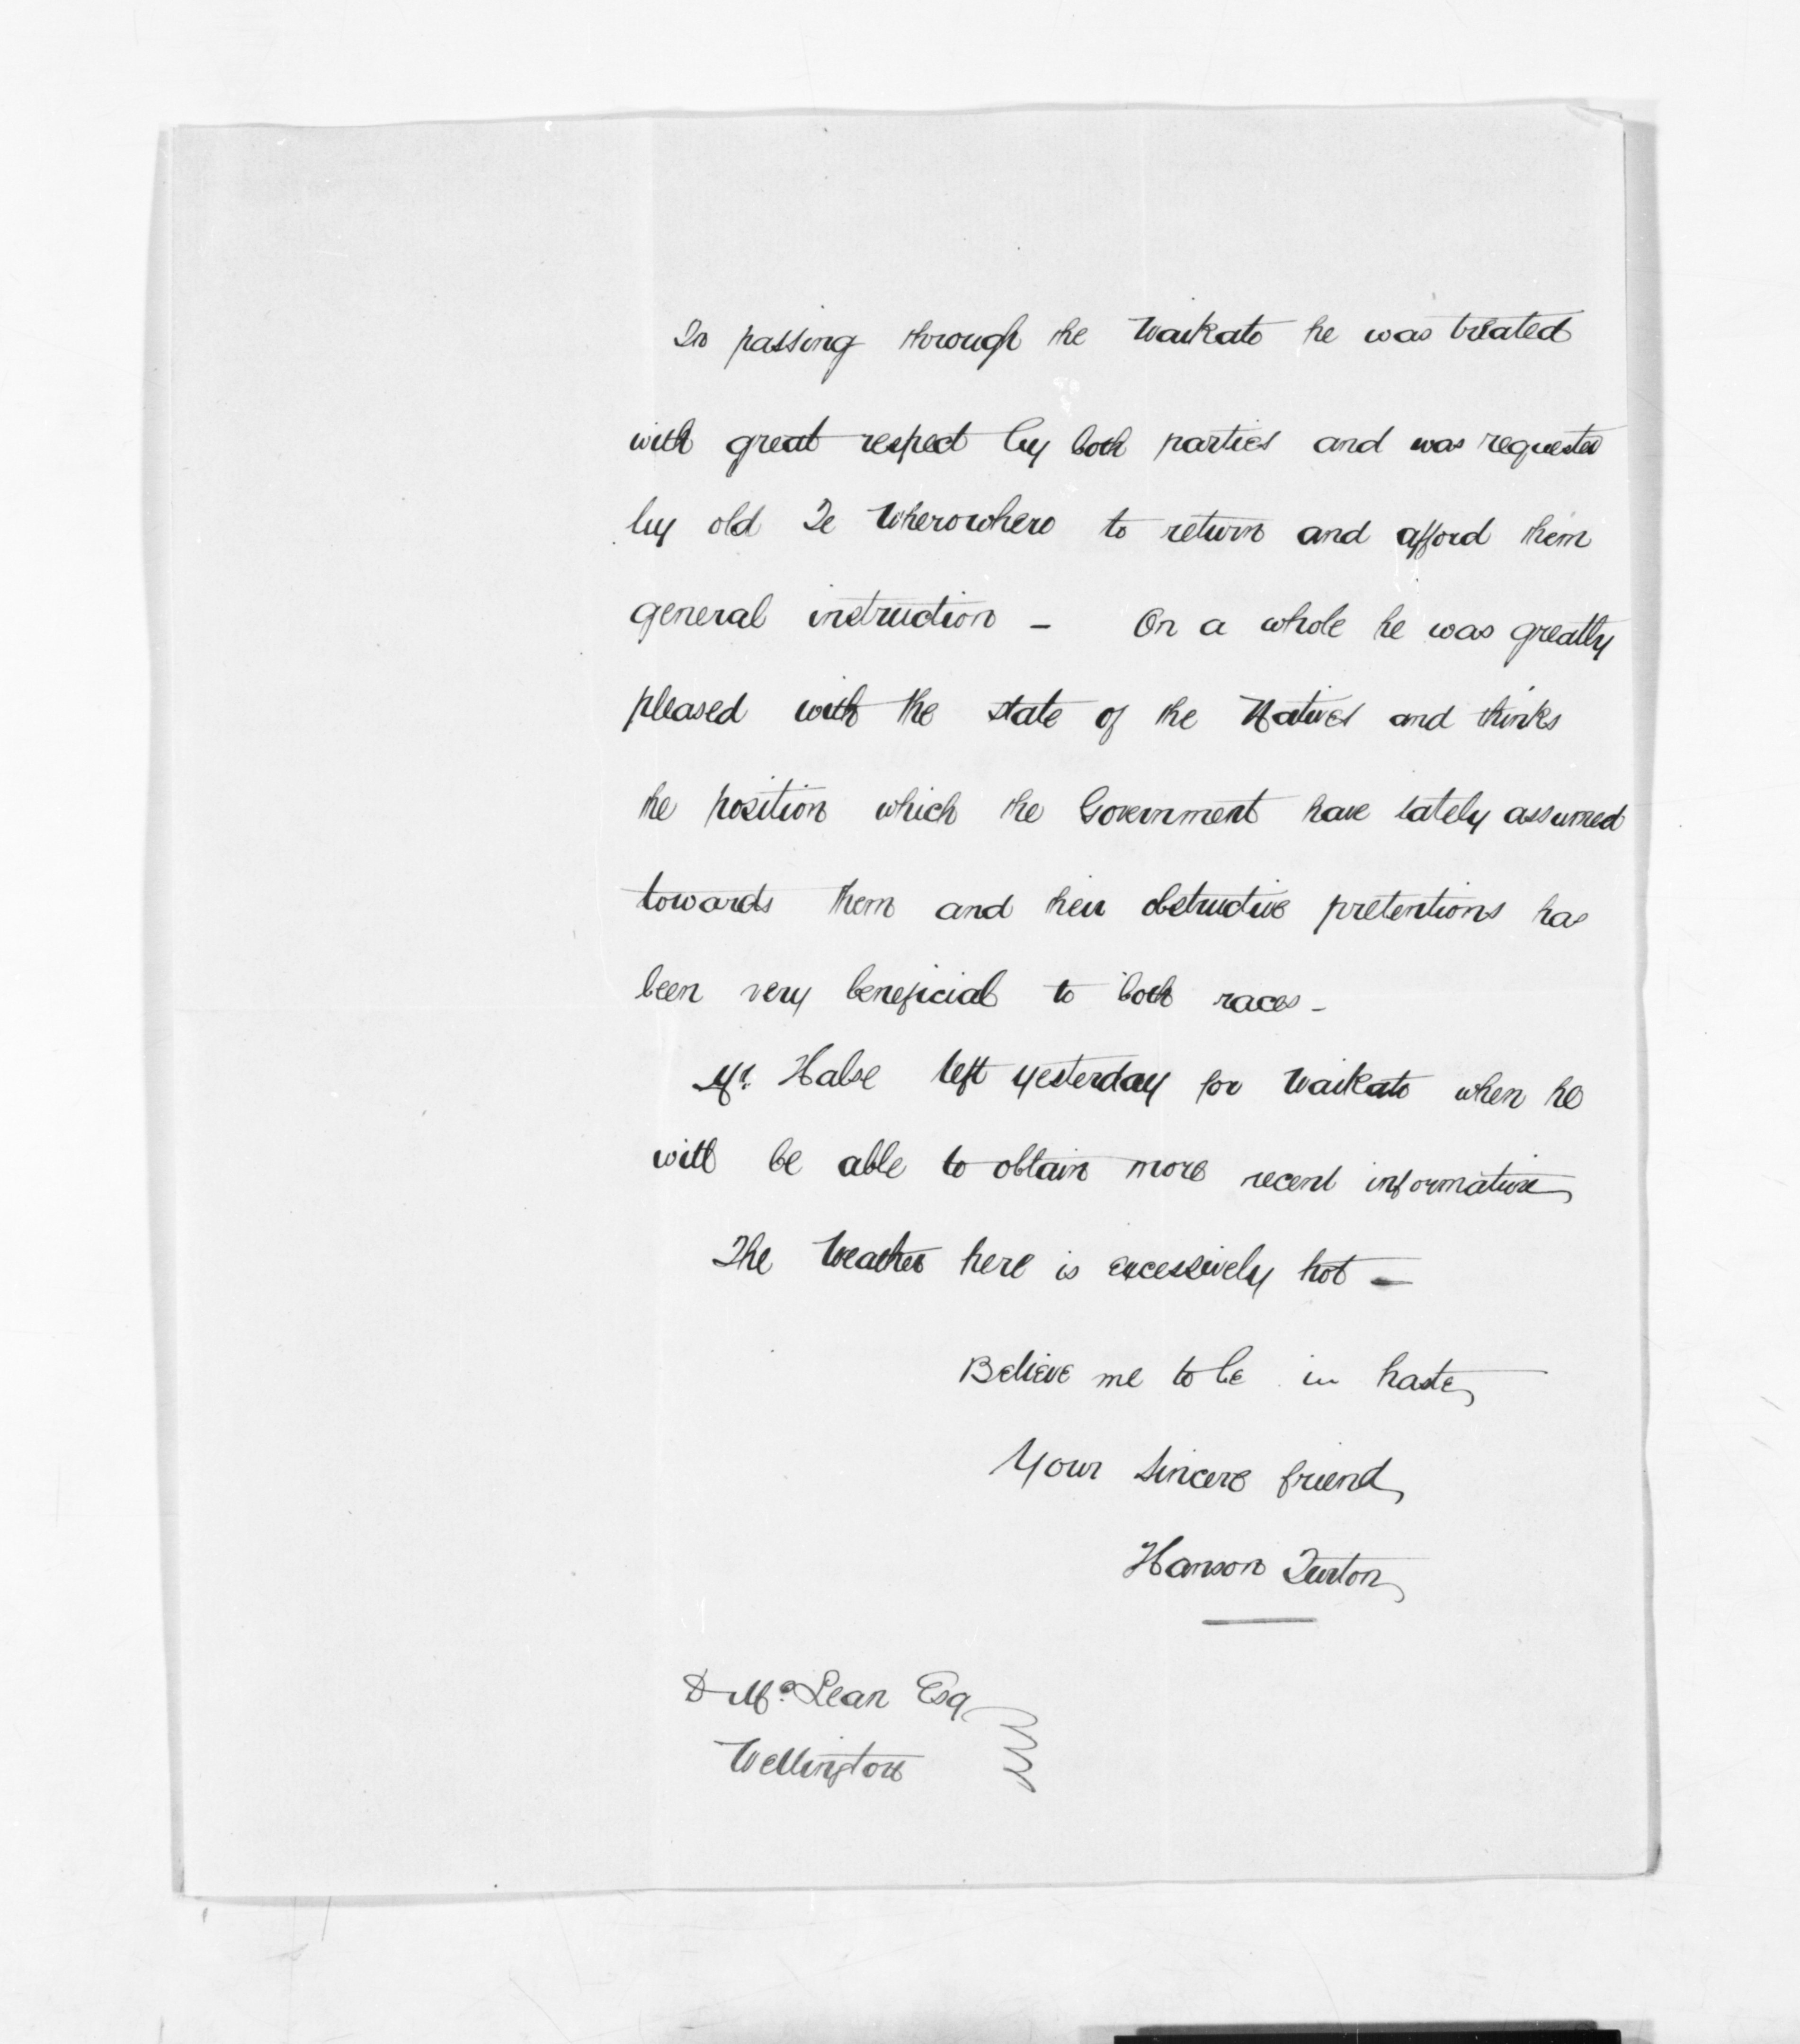 In passing through the Waikato he was treated
with great respect by both parties and was requested
by old Te Wherowhero to return and afford them
general instruction - On a whole he was greatly
pleased with the state of the Natives and thinks
the position which the Government have lately assumed
towards them and their obstructive pretentions has
been very beneficial to both races -
Mr. Halse left yesterday for Waikato when he
will be able to obtain more recent information
The Weather here is excessively hot -
Believe me to be in haste,
Your sincere friend,
Hanson Turton,
D McLean Esq
Wellington